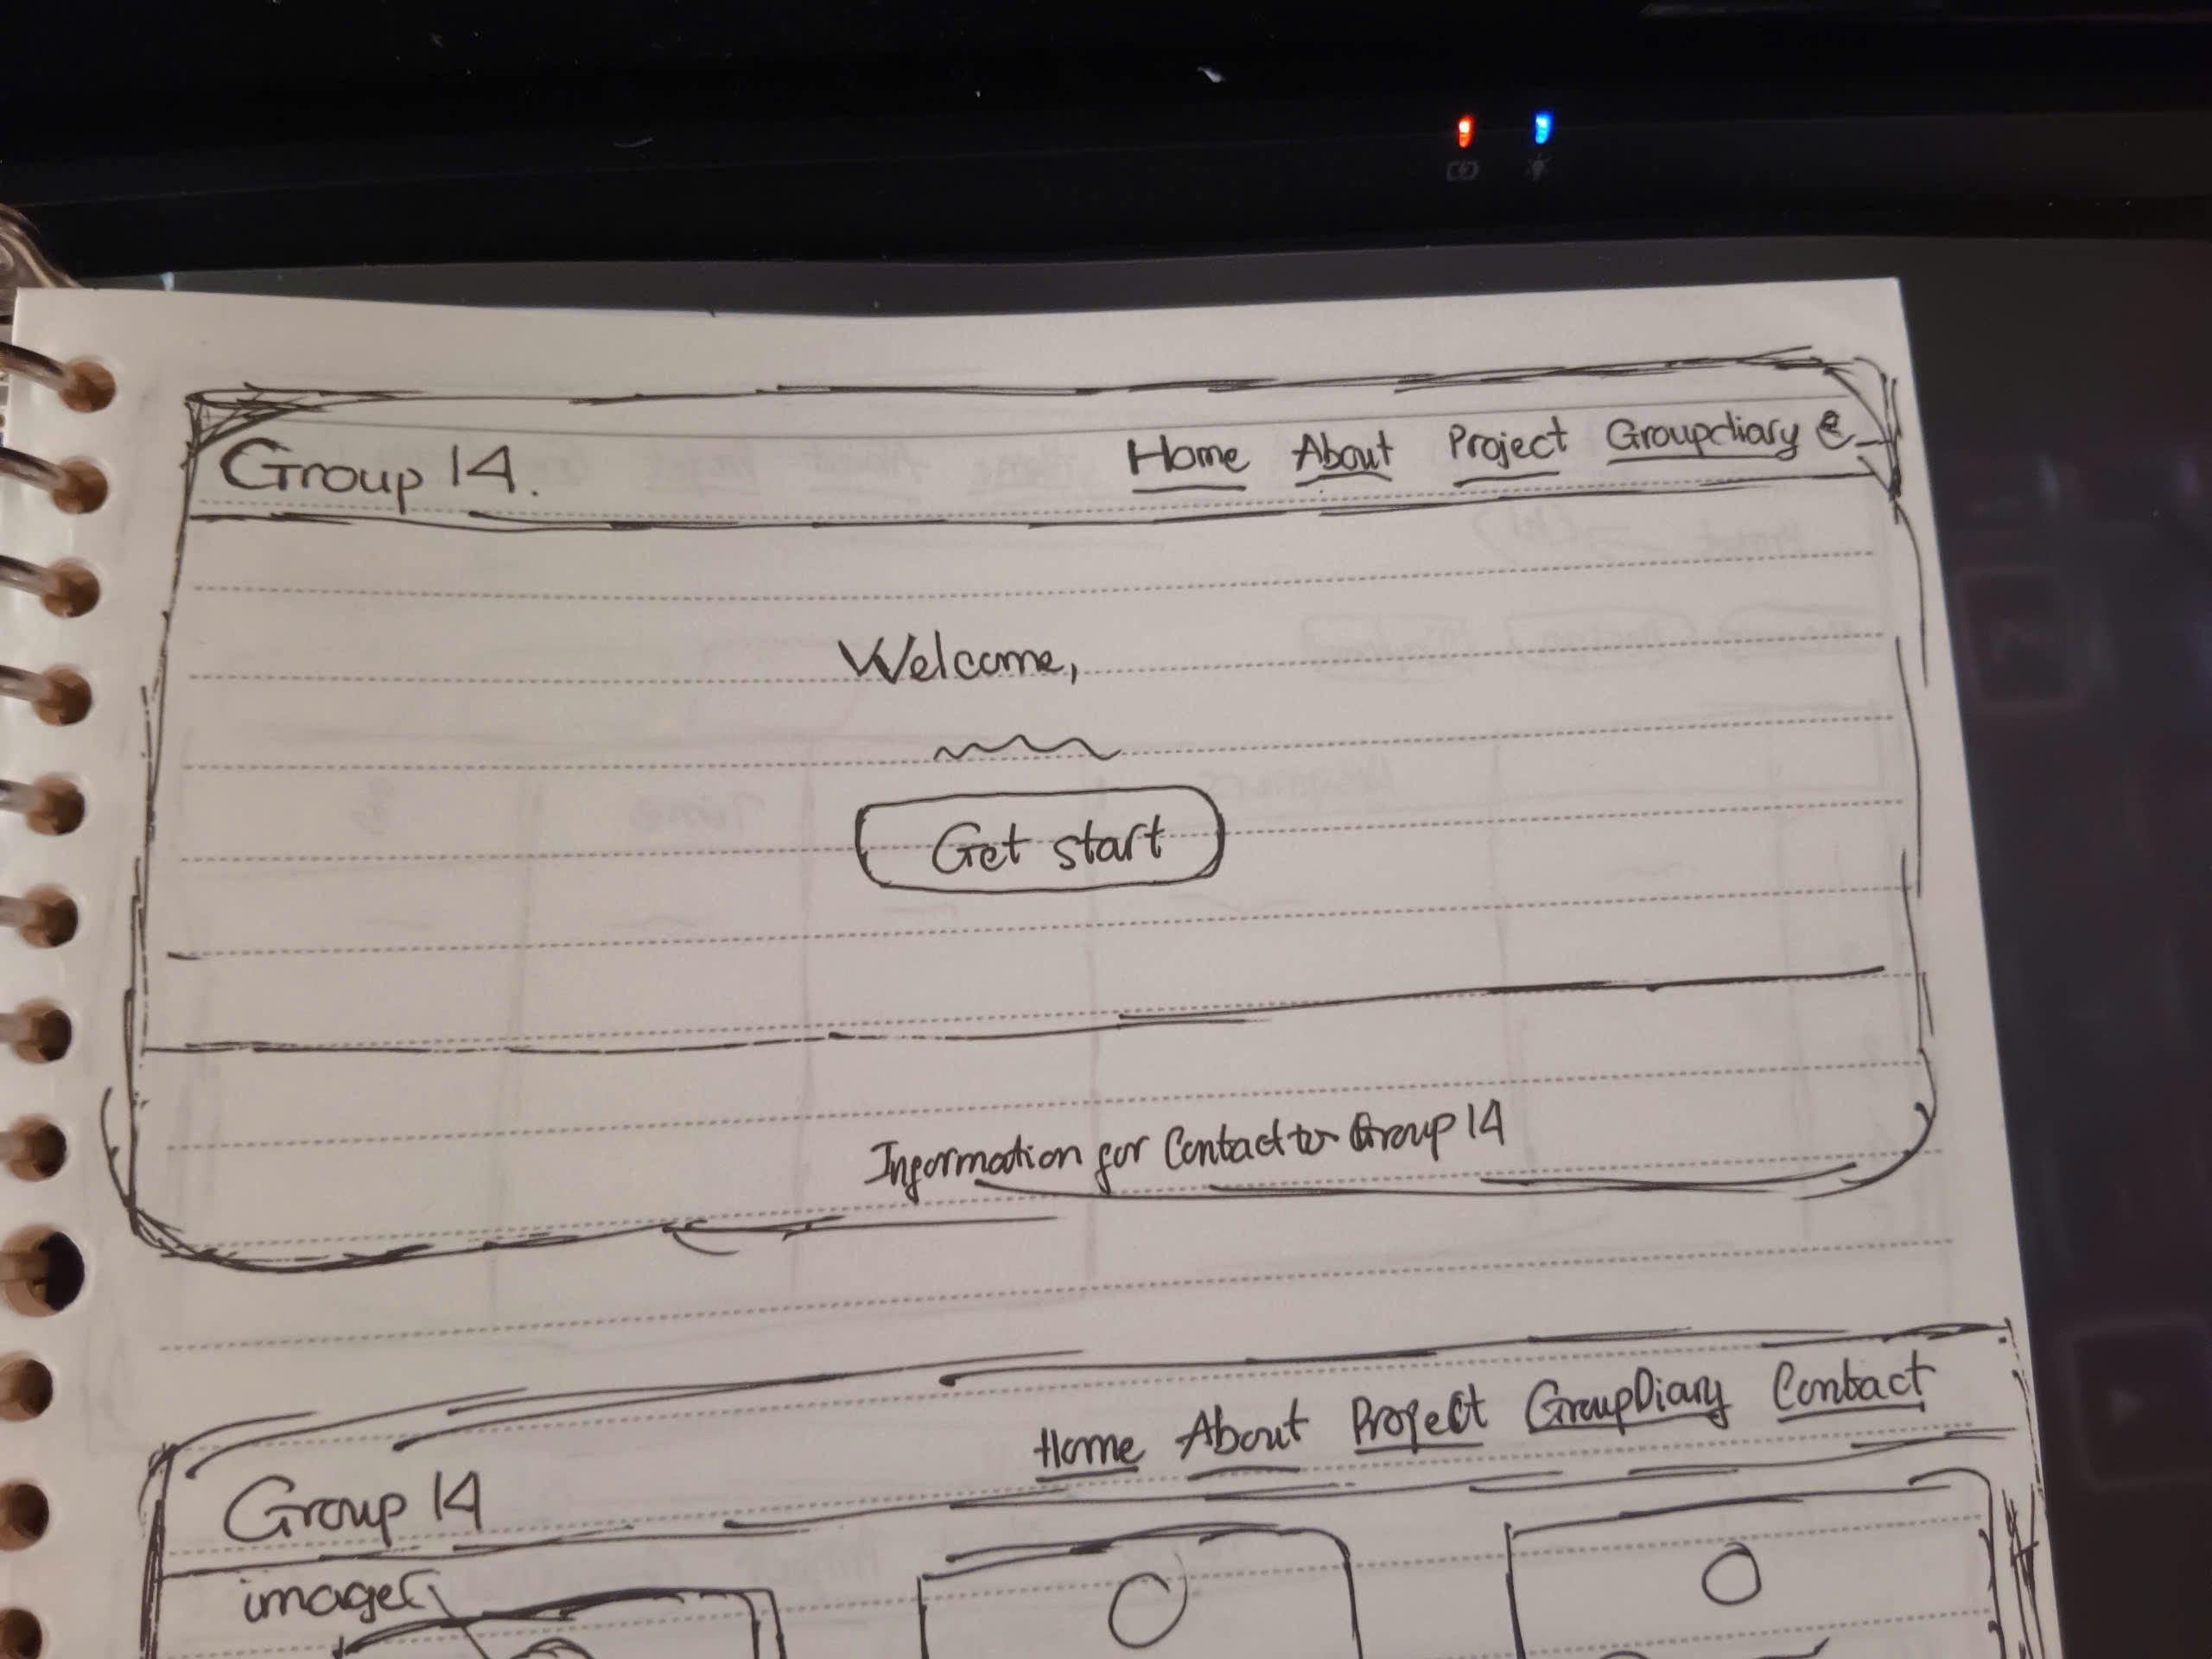 Group 14.
Home About Project Groupdiary
Welcome,
Get start
Information for Contact to Group 14
Home About Project GroupDiary Contact
Group 14
image